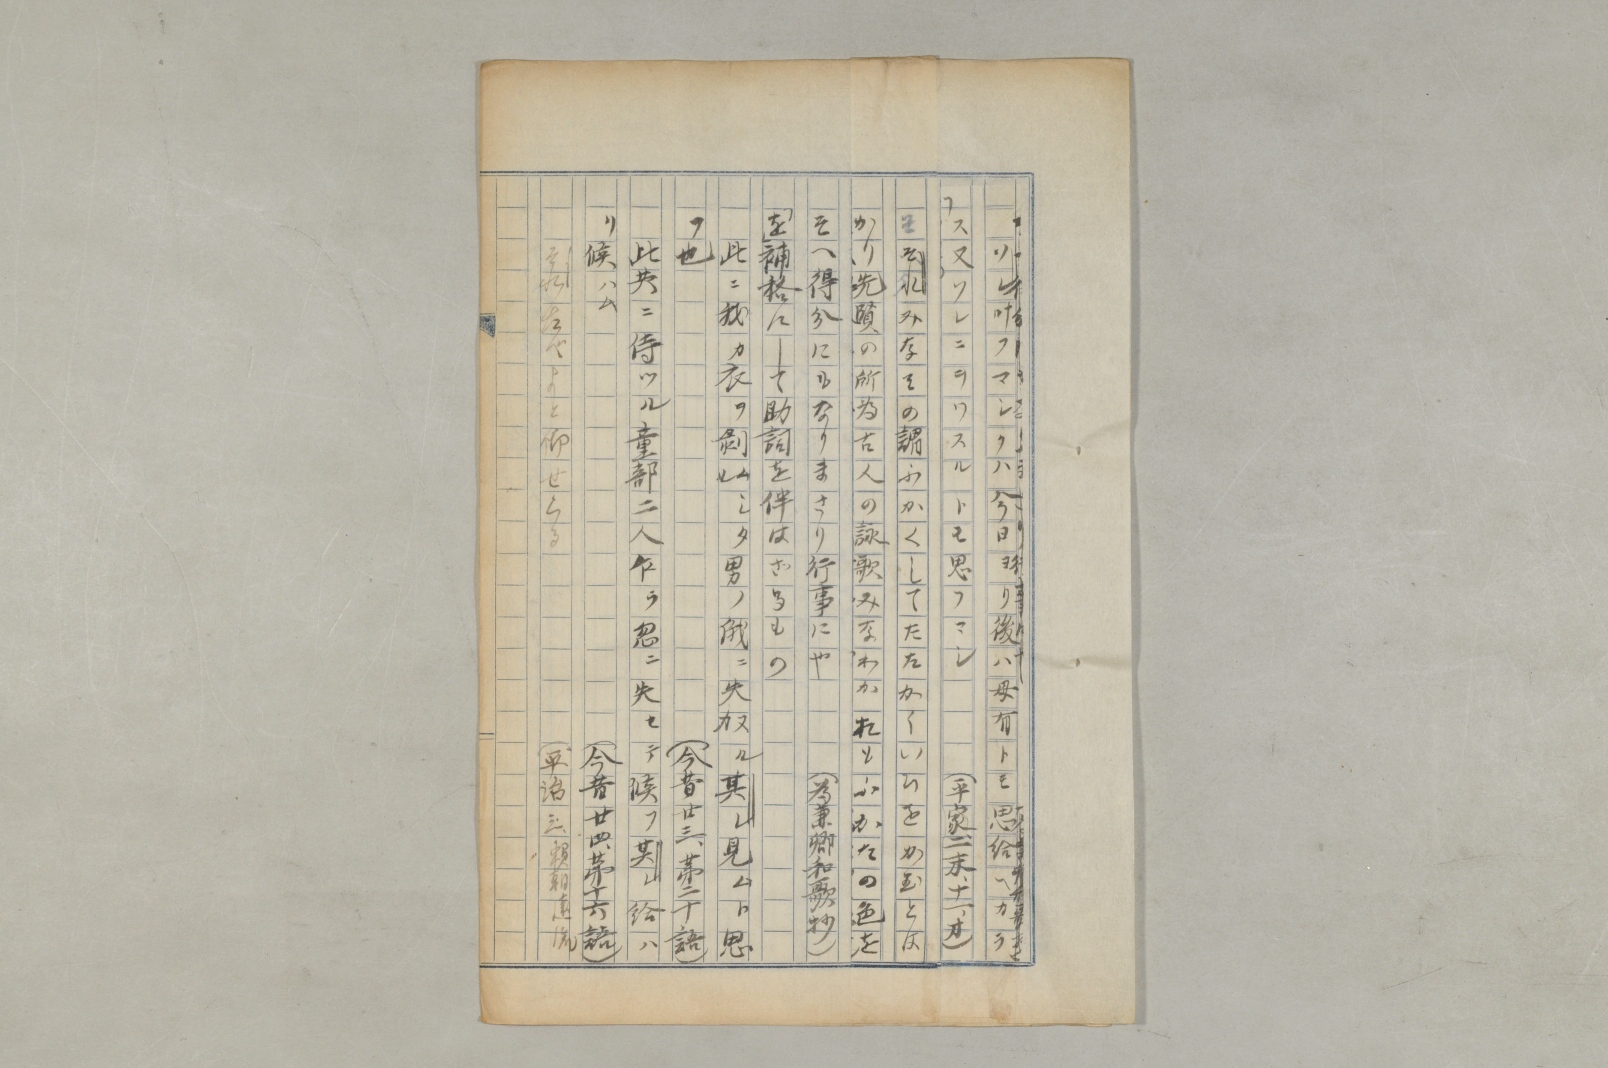 ソレ叶フマシクハ今日ヨリ後ハ母有トモ思給ヘカラ
ス又ソレニヲワスルトモ思フマシ（平家二末、十一、オ）
それみなその謂ふかくしてたたかくいひをかむとは
かり先賢の所為古人の詠歌みなわかれもふかたの色を
そへ得分にもなりまさり行事にや（為兼卿和歌抄）
を補格にして助詞を伴はざるもの
此ニ我カ衣ヲ剥ムシタ男ノ俄ニ失ヌル其レ見ムト思
ヲ也（今昔廿三、第二十語）
此共ニ侍ツル童部二人乍ラ忽ニ失セテ候フ其レ給ハ
リ候ハム（今昔廿四、第十六語）
と仰せらる（平治三、頼朝遠流